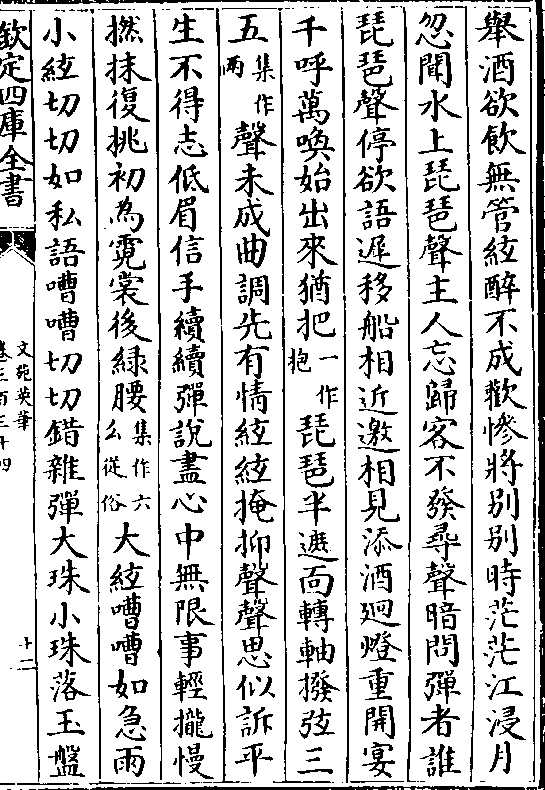 舉酒欲飲無管絃醉不成歡慘將别别時茫茫江浸月
忽聞水上琵琶聲主人忘歸客不發尋聲暗問彈者誰
琵琶聲停欲語遲移船相近邀相見添酒迴燈重開宴
千呼萬喚始出來猶把一作抱琵琶半遮面轉軸撥弦三
五集作兩聲未成曲調先有情絃絃掩抑聲聲思似訴平
生不得志低眉信手續續彈說盡心中無限事輕攏慢
撚抹復挑初為霓裳後緑腰集作六么從俗大絃嘈嘈如急雨
小絃切切如私語嘈嘈切切錯雜彈大珠小珠落玉盤
欽定四庫全書
文苑英華
卷三百三十四
十二